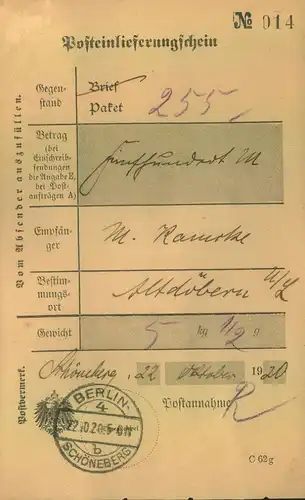 № 014
Posteinlieferungschein
Vom Absender auszufüllen.
Gegen-
stand
Brief
Paket
255
Betrag
(bei
Einschreib-
sendungen
die Angabe E,
bei Post-
aufträgen A)
Fünfhundert M
Empfän-
ger
M.
Bestim-
mungs-
ort
Altdöbern N/L
Gewicht
5 kg 1/2 g
Schöneberg, 22 Oktober 1920
Postvermerk.
BERLIN-
4
22.10.20.5-6N
b
SCHÖNEBERG
Postannahme
C 62g